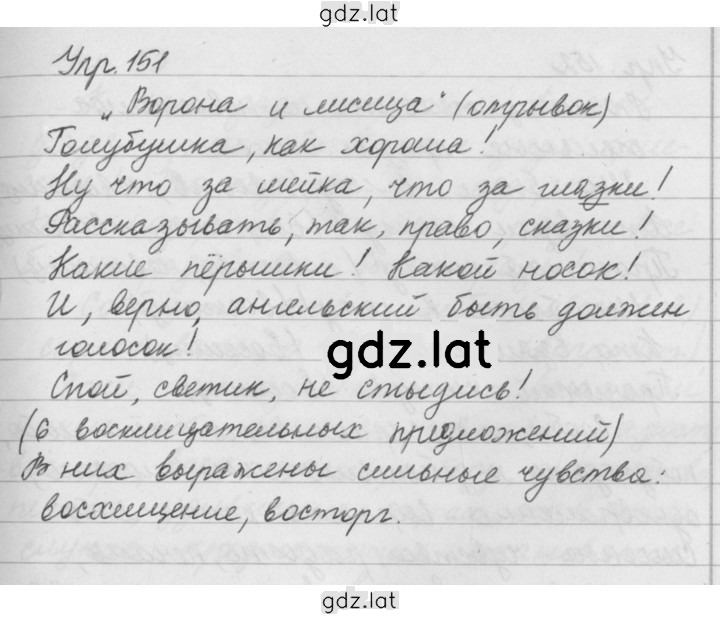 gdz.lat
Упр. 151
„Ворона и лисица" (отрывок)
Голубушка, как хороша!
Ну что за шейка, что за глязки!
Рассказывать, так, право, сказки!
Какие пёрышки! Какой носок!
И, верно, ангельский быть должен
голосок!
gdz.lat
Спой, светик, не стыдись!
(6 восклицательных предложений)
В них выражены сильные чувства:
восхищение, восторг.
gdz.lat